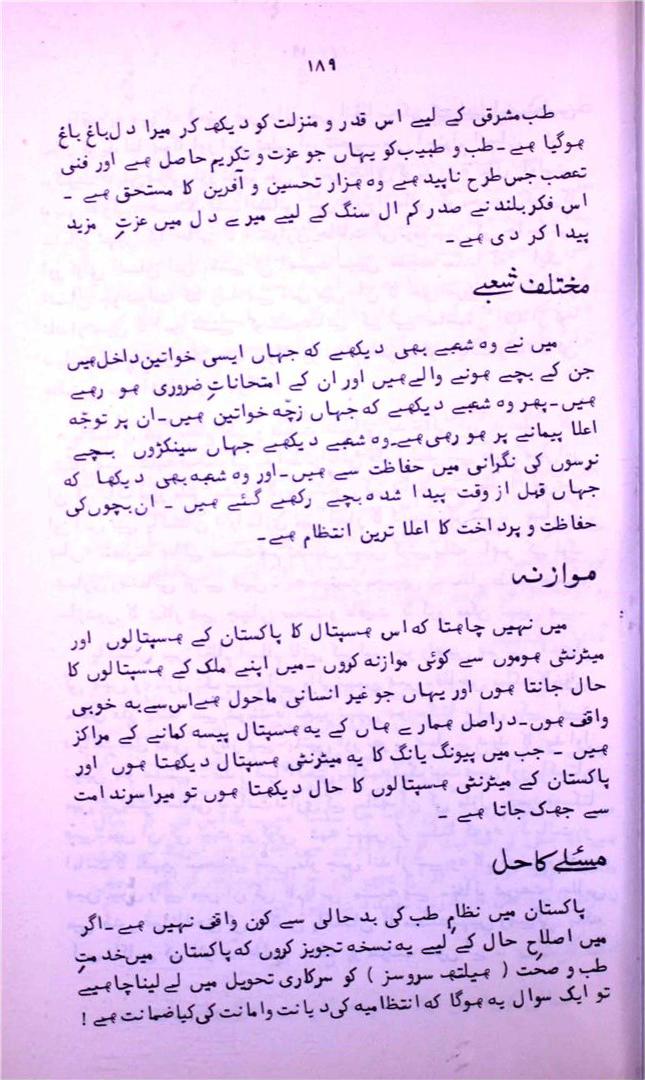 ۱۸۹
طب مشرقی کے لیے اس قدر و منزلت کو دیکھ کر میرا دل باغ باغ
ہوگیا ہے۔ طب و طبیب کو یہاں جو عزت و تکریم حاصل ہے اور فنی
تعصب جس طرح ناپید ہے وہ ہزار تحسین و آفرین کا مستحق ہے۔
اس فکر بلند نے صدر کم ال سنگ کے لیے میرے دل میں عزتِ مزید
پیدا کر دی ہے۔
مختلف شعبے
میں نے وہ شعبے بھی دیکھے کہ جہاں ایسی خواتین داخل ہیں
جن کے بچے ہونے والے ہیں اور ان کے امتحاناتِ ضروری ہو رہے
ہیں۔ پھر وہ شعبے دیکھے کہ جہاں زچّہ خواتین ہیں۔ ان پر توجّہ
اعلا پیمانے پر ہو رہی ہے۔ وہ شعبے دیکھے جہاں سینکڑوں بچے
نرسوں کی نگرانی میں حفاظت سے ہیں۔ اور وہ شعبہ بھی دیکھا کہ
جہاں قبل از وقت پیدا شدہ بچے رکھے گئے ہیں ۔ ان بچوں کی
حفاظت و پرداخت کا اعلا ترین انتظام ہے۔
موازنہ
میں نہیں چاہتا کہ اس ہسپتال کا پاکستان کے ہسپتالوں اور
میٹرنٹی ہوموں سے کوئی موازنہ کروں۔ میں اپنے ملک کے ہسپتالوں کا
حال جانتا ہوں اور یہاں جو غیر انسانی ماحول ہے اس سے بہ خوبی
واقف ہوں۔ دراصل ہمارے ہاں کے یہ ہسپتال پیسہ کمانے کے مراکز
ہیں ۔ جب میں پیونگ یانگ کا یہ میٹرنٹی ہسپتال دیکھتا ہوں اور
پاکستان کے میٹرنٹی ہسپتالوں کا حال دیکھتا ہوں تو میرا سر ندامت
سے جھک جاتا ہے ۔
مسئلے کا حل
پاکستان میں نظامِ طب کی بدحالی سے کون واقف نہیں ہے۔ اگر
میں اصلاحِ حال کے لیے یہ نسخہ تجویز کروں کہ پاکستان میں خدمتِ
طب و صحّت ( ہیلتھ سروسز ) کو سرکاری تحویل میں لے لینا چاہیے
تو ایک سوال یہ ہوگا کہ انتظامیہ کی دیانت و امانت کی کیا ضمانت ہے !